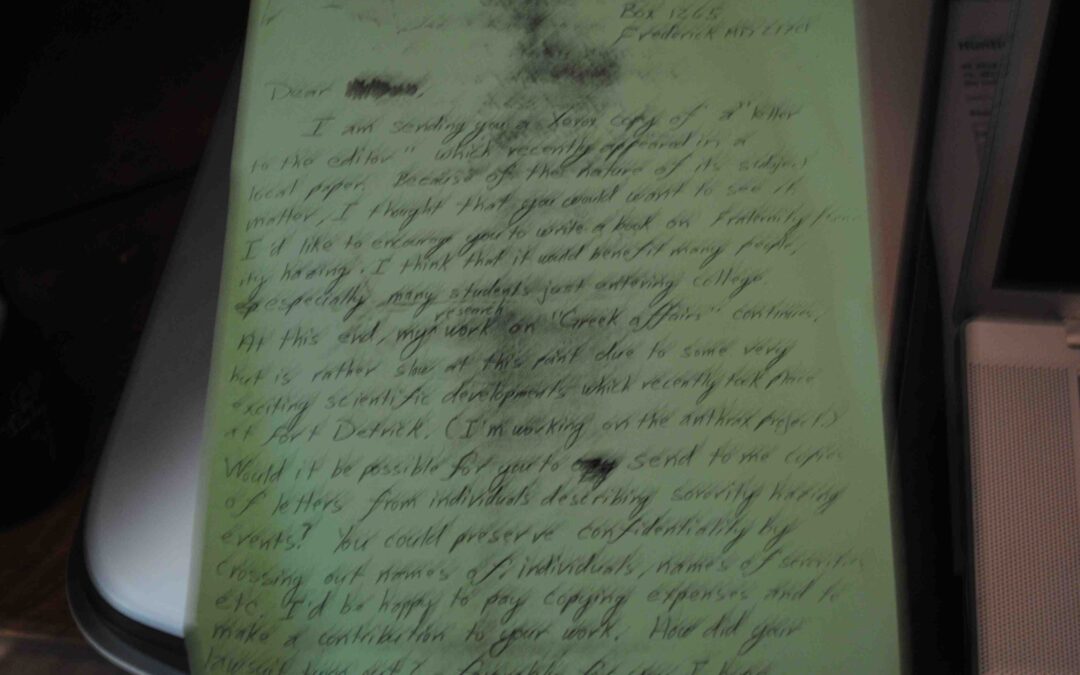 Box 1265
Frederick MD 21701
Dear
I am sending you a Xerox copy of a "letter
to the editor" which recently appeared in a
local paper. Because of the nature of its subject
matter, I thought that you would want to see it.
I'd like to encourage you to write a book on Fraternity/
ity hazing. I think that it would benefit many people,
especially many students just entering college.
At this end, my research work on "Greek affairs" continues,
but is rather slow at this point due to some very
exciting scientific developments which recently took place
at Fort Detrick. (I'm working on the anthrax project.)
Would it be possible for you to send to me copies
of letters from individuals describing sorority hazing
events? You could preserve confidentiality by
crossing out names of individuals, names of sororities
etc. I'd be happy to pay copying expenses and to
make a contribution to your work. How did your
lawsuit turn out? Favorably for you I hope